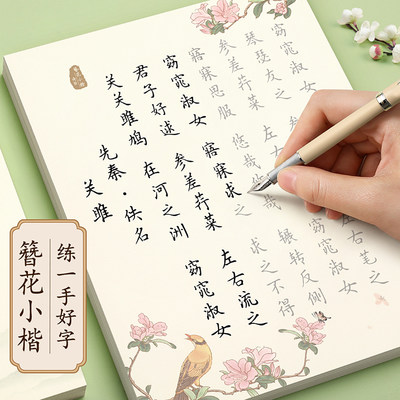 关雎
先秦·佚名
关关雎鸠
在河之洲
君子好逑
窈窕淑女
参差荇菜
窈窕淑女
寤寐求之
左右流之
寤寐思服
悠哉悠
求之不得
参差荇菜
辗转反侧
琴瑟友之
左右
左右
之
簪花小楷
练一手好字